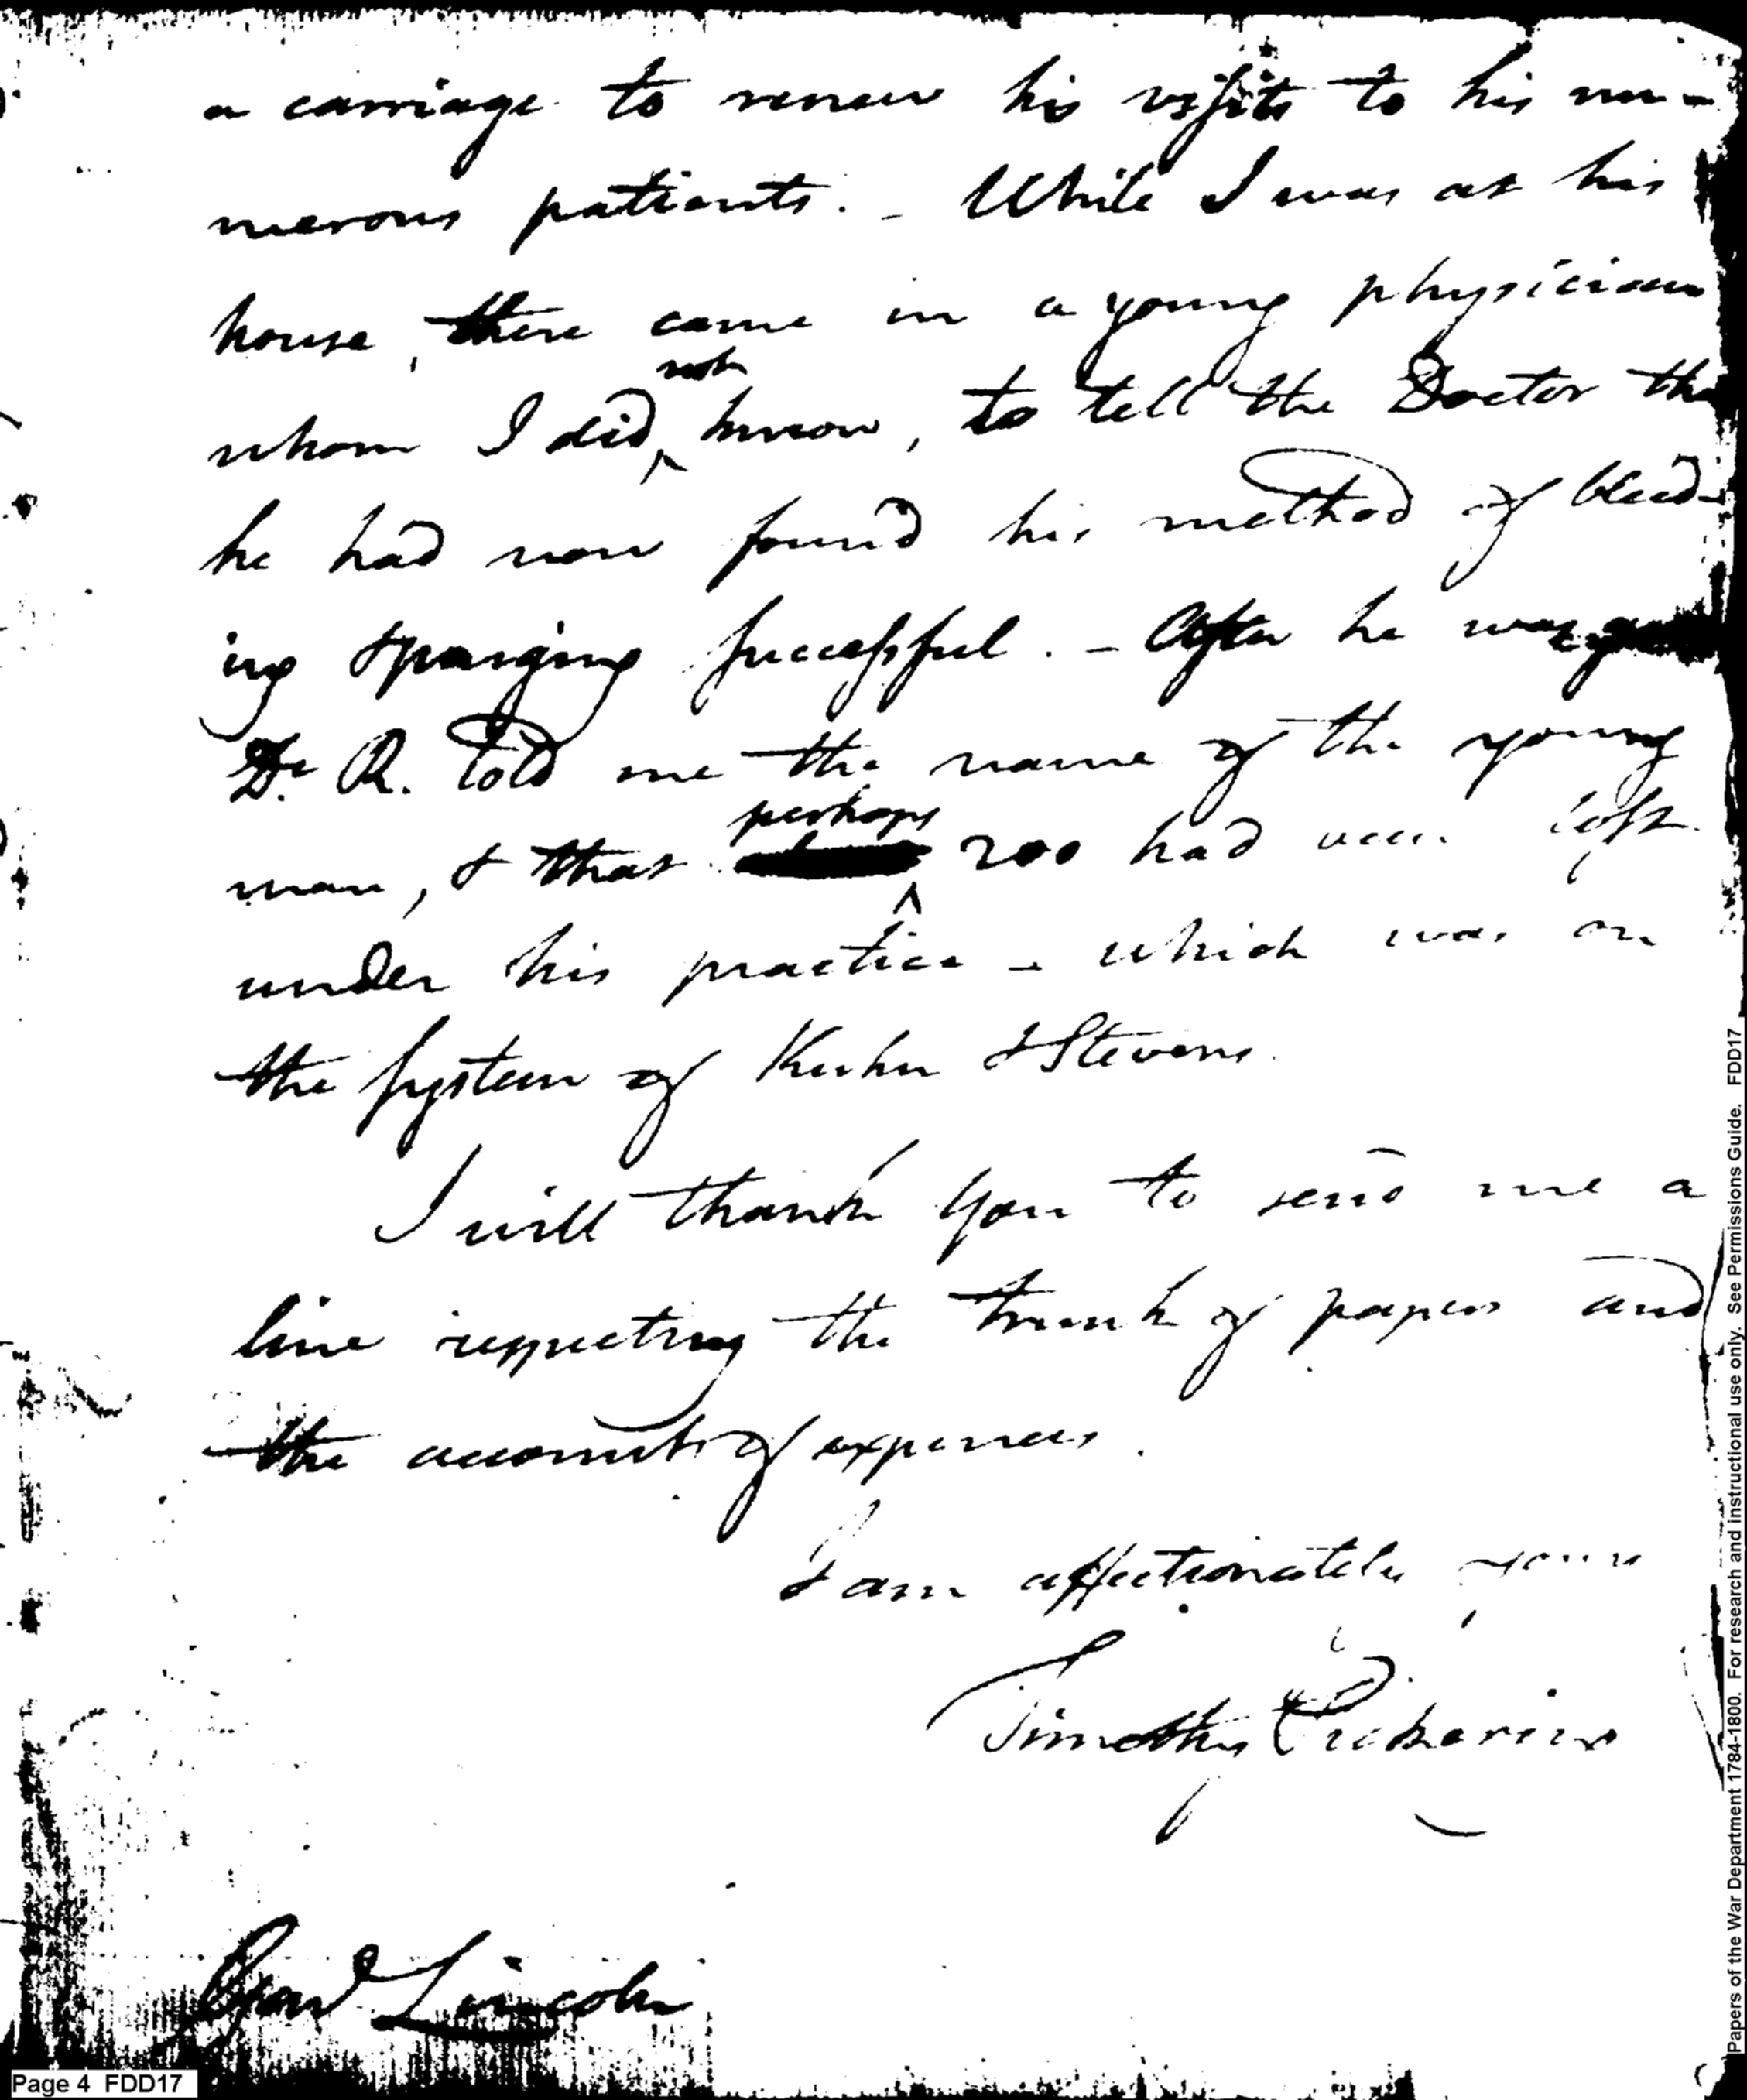 a carriage to renew his visits to his nu-
merous patients. - While I was at his
house, there came in a young physician
not
whom I did ^ know, to tell the Doctor tha
he had now found his method of bleed-
ing & purging successful. - After he was
Dr. R. told me the name of the young
perhaps
man, & that ^ 200 had been lost
under his practice - which was on
the system of Kuhn & Stevens.
I will thank you to send me a
line respecting the trunk of papers and
the accounts of expences.
I am affectionately yours
Timothy Pickering
Genl. Lincoln
Page 4 FDD17
Papers of the War Department 1784-1800. For research and instructional use only. See Permissions Guide. FDD17